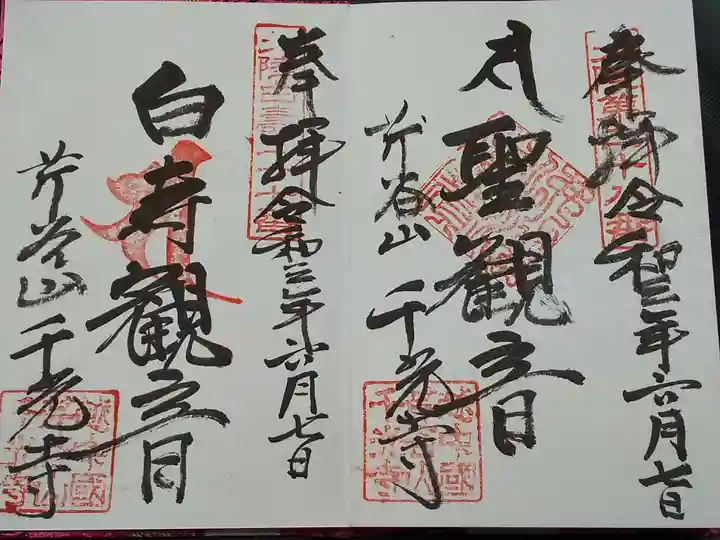 奉拝 令和三年六月七日
聖観音
芹谷山 千光寺
奉拝 令和三年六月七日
白寿観音
芹谷山 千光寺